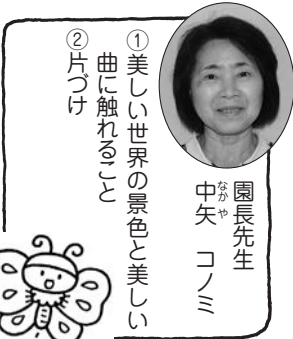 園長先生
なか や
中矢 コノミ
①美しい世界の景色と美しい
曲に触れること
②片づけ